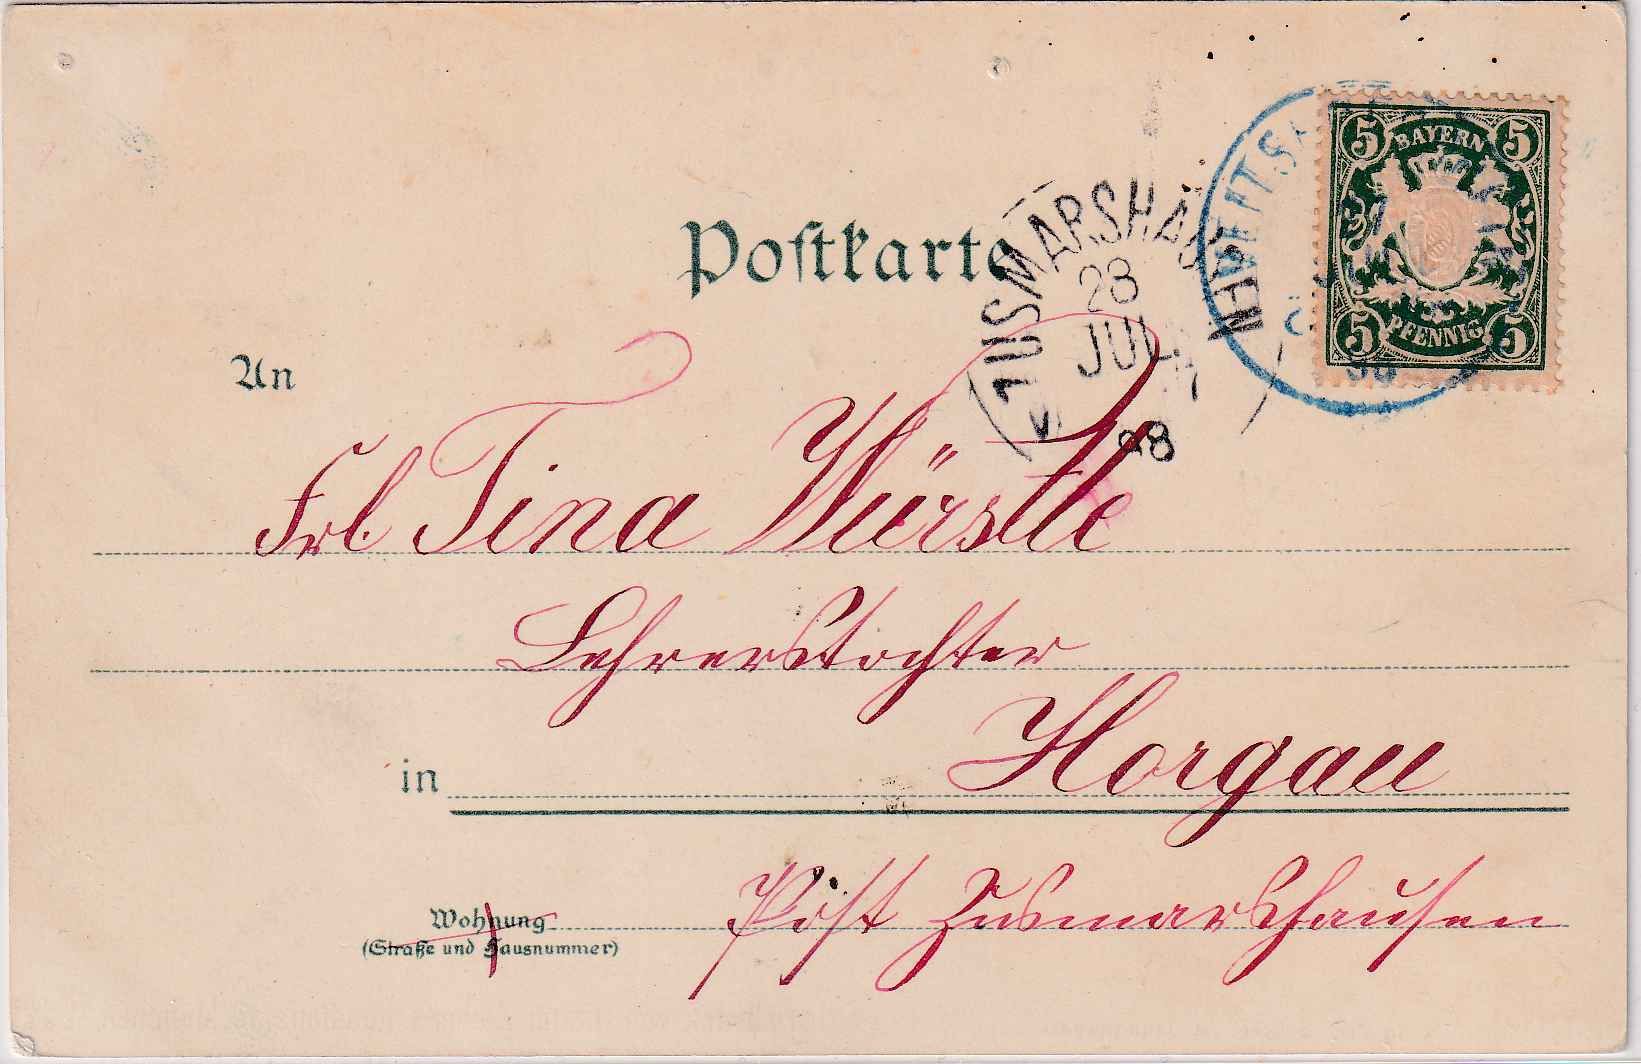 Postkarte
BAYERN
5 5
PFENNIG
5 5
ZUSMARSHAUSEN
28
JUL
98
An
Frl. Tina Würstle
Lehrerstochter
in Horgau
Wohnung
(Straße und Hausnummer)
Post Zusmarshausen